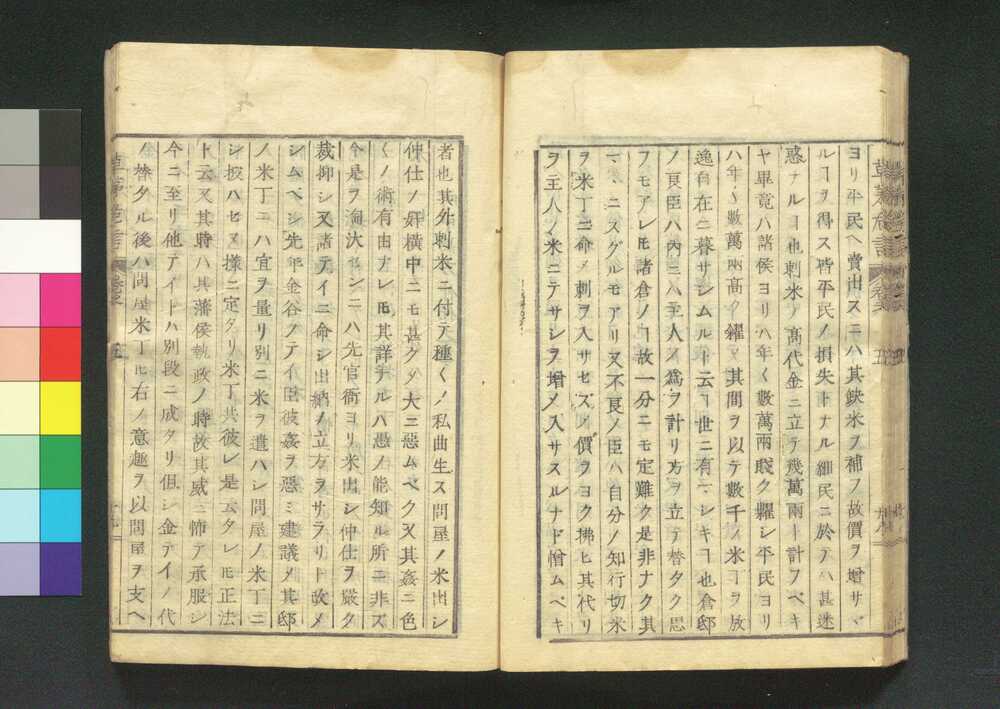 ヨリ平民ヘ賣出スニハ其鈌米ヲ補フ故價ヲ增サヾ
ルヿヲ得ス皆平民ノ損失トナル細民ニ於テハ甚迷
惑ナルヿ也刺米ノ高代金ニ立テ幾萬兩ト計フベキ
ヤ畢竟ハ諸侯ヨリハ年〱數萬兩賤ク糶シ平民ヨリ
ハ年〱數萬兩高ク糴メ其間ヲ以テ數千ノ米丁ヲ放
逸自在ニ暮サシムルト云フヿ世ニ有マシキヿ也倉邸
ノ良臣ハ內〻ハ主人ノ爲ヲ計リ方ヲ立テ替タク思
フモアレ𪜈諸倉ノヿ故一分ニモ定難ク是非ナク其
マヽニスグルモアリ又不良ノ臣ハ自分ノ知行切米
ヲ米丁ニ命メ刺ヲ入サセズメ價ヲヨク拂ヒ其代リ
ヲ主人ノ米ニテサシヲ增メ入サスルナド憎ムベキ
者也其外刺米ニ付テ種〱ノ私曲生ス問屋ノ米出シ
仲仕ノ奸橫中ニモ甚グダ大ニ惡ムベク又其姦ニ色
〱ノ術有由ナレ𪜈其詳ナルハ愚ノ能知ル所ニ非ズ
今是ヲ淘汰センニハ先官衙ヨリ米出シ仲仕ヲ嚴ク
裁抑シ又諸テイニ命シ出納ノ立方ヲサラリト改メ
シムベシ先年金谷ノテイ臣彼姦ヲ惡ミ建議メ其邸
ノ米丁ニハ宜ヲ量リ別ニ米ヲ遣ハシ問屋ノ米丁ニ
シ扱ハセヌ樣ニ定タリ米丁共彼レ是云タレ𪜈正法
ト云又其時ハ其藩侯執政ノ時故其威ニ怖テ承服シ
今ニ至リ他テイトハ別段ニ成タリ但シ金テイノ代
ノ替タル後ハ問屋米丁𪜈右ノ意趣ヲ以問屋ヲ支ヘ